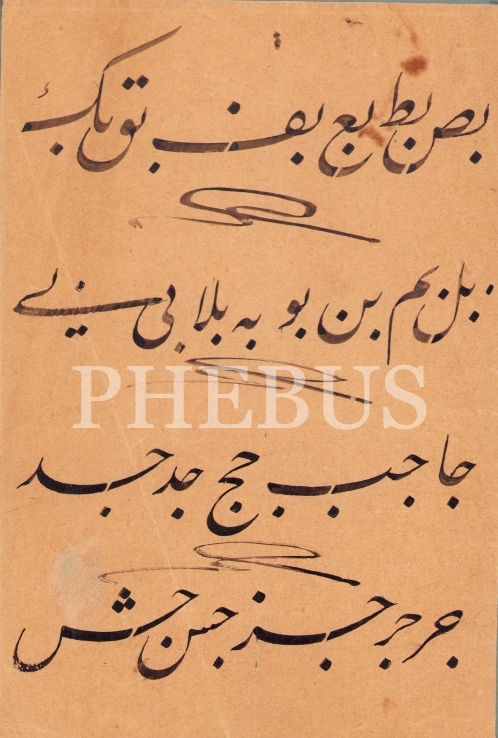 بص بط بع بف بق بك
بل بم بن بو به بلا بى
جا جب جج جد جد
PHEBUS
جر جر جز جس جش